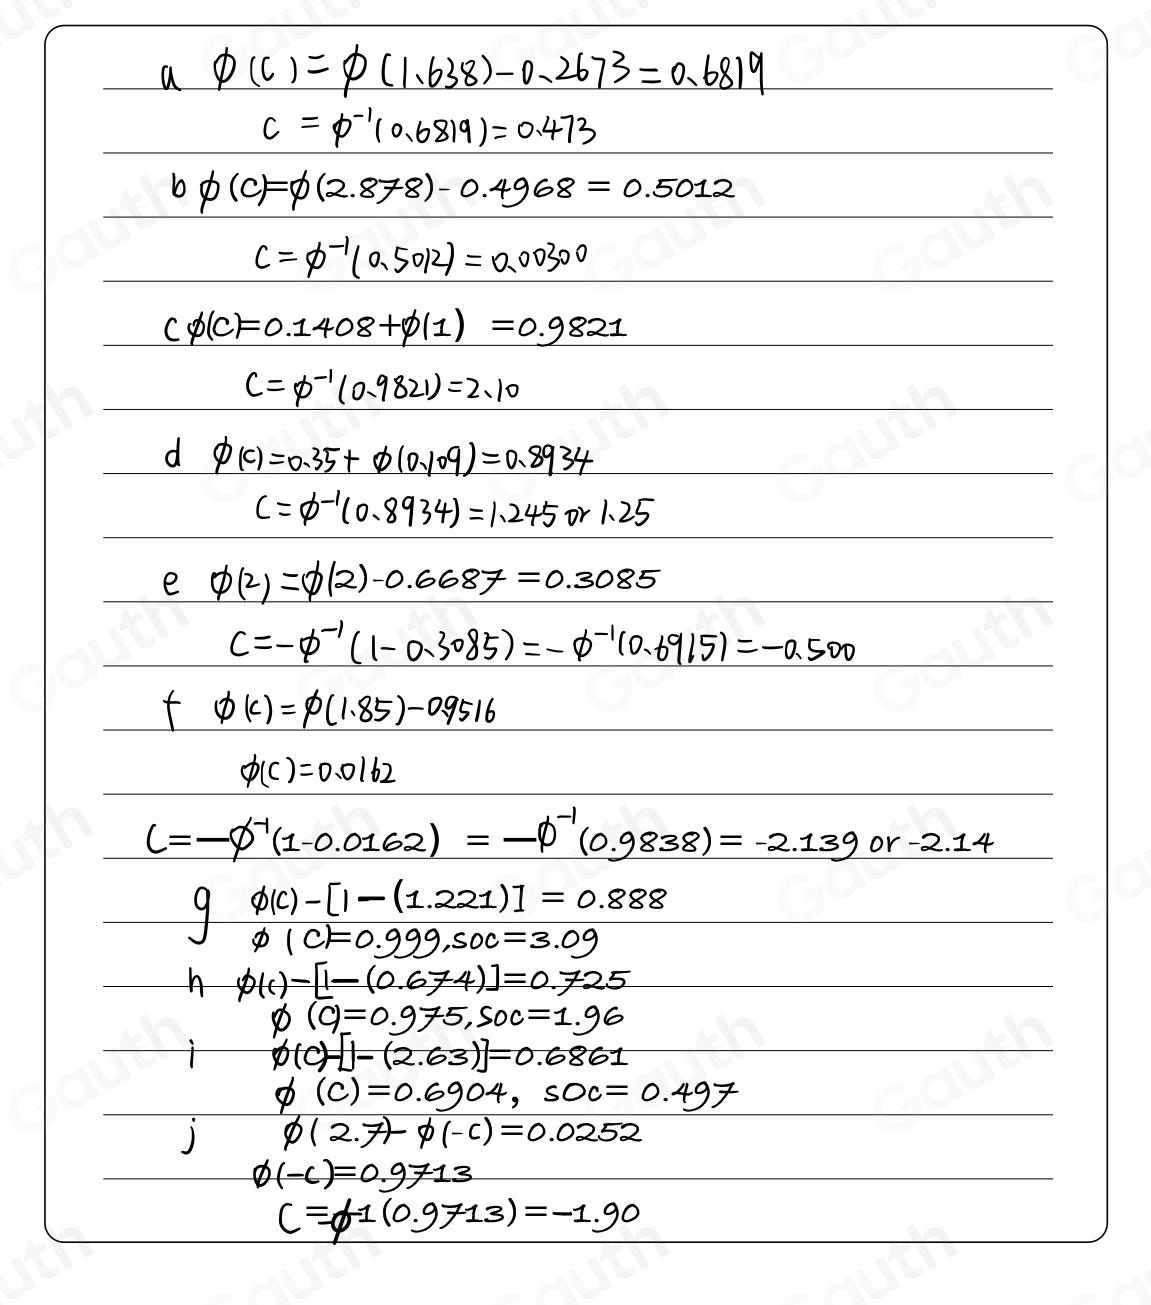 a ϕ(c) = ϕ(1.638)-0.2673 = 0.6819
c = ϕ⁻¹(0.6819) = 0.473
b ϕ(C)=ϕ(2.878)- 0.4968 = 0.5012
C = ϕ⁻¹(0.5012) = 0.00300
c ϕ(C)=0.1408+ϕ(1) =0.9821
C = ϕ⁻¹(0.9821)=2.10
d ϕ(c)=0.35+ ϕ(0.109)=0.8934
C = ϕ⁻¹(0.8934) = 1.245 or 1.25
e ϕ(2) =ϕ(2)-0.6687 =0.3085
C = -ϕ⁻¹(1- 0.3085) = - ϕ⁻¹(0.6915) = -0.500
f ϕ(c) = ϕ(1.85)-09516
ϕ(C)=0.0162
C=-ϕ⁻¹(1-0.0162) = -ϕ⁻¹(0.9838)= -2.139 or -2.14
g ϕ(C) -[1-(1.221)] = 0.888
ϕ(C)=0.999,soc=3.09
h ϕ(c)-[1-(0.674)]=0.725
ϕ (C)=0.975,Soc=1.96
i ϕ(C)-[1-(2.63)]=0.6861
ϕ (C)=0.6904, sOc= 0.497
j ϕ( 2.7)- ϕ(-c)=0.0252
ϕ(-c)=0.9713
C = -ϕ-1(0.9713)=-1.90
Gauth